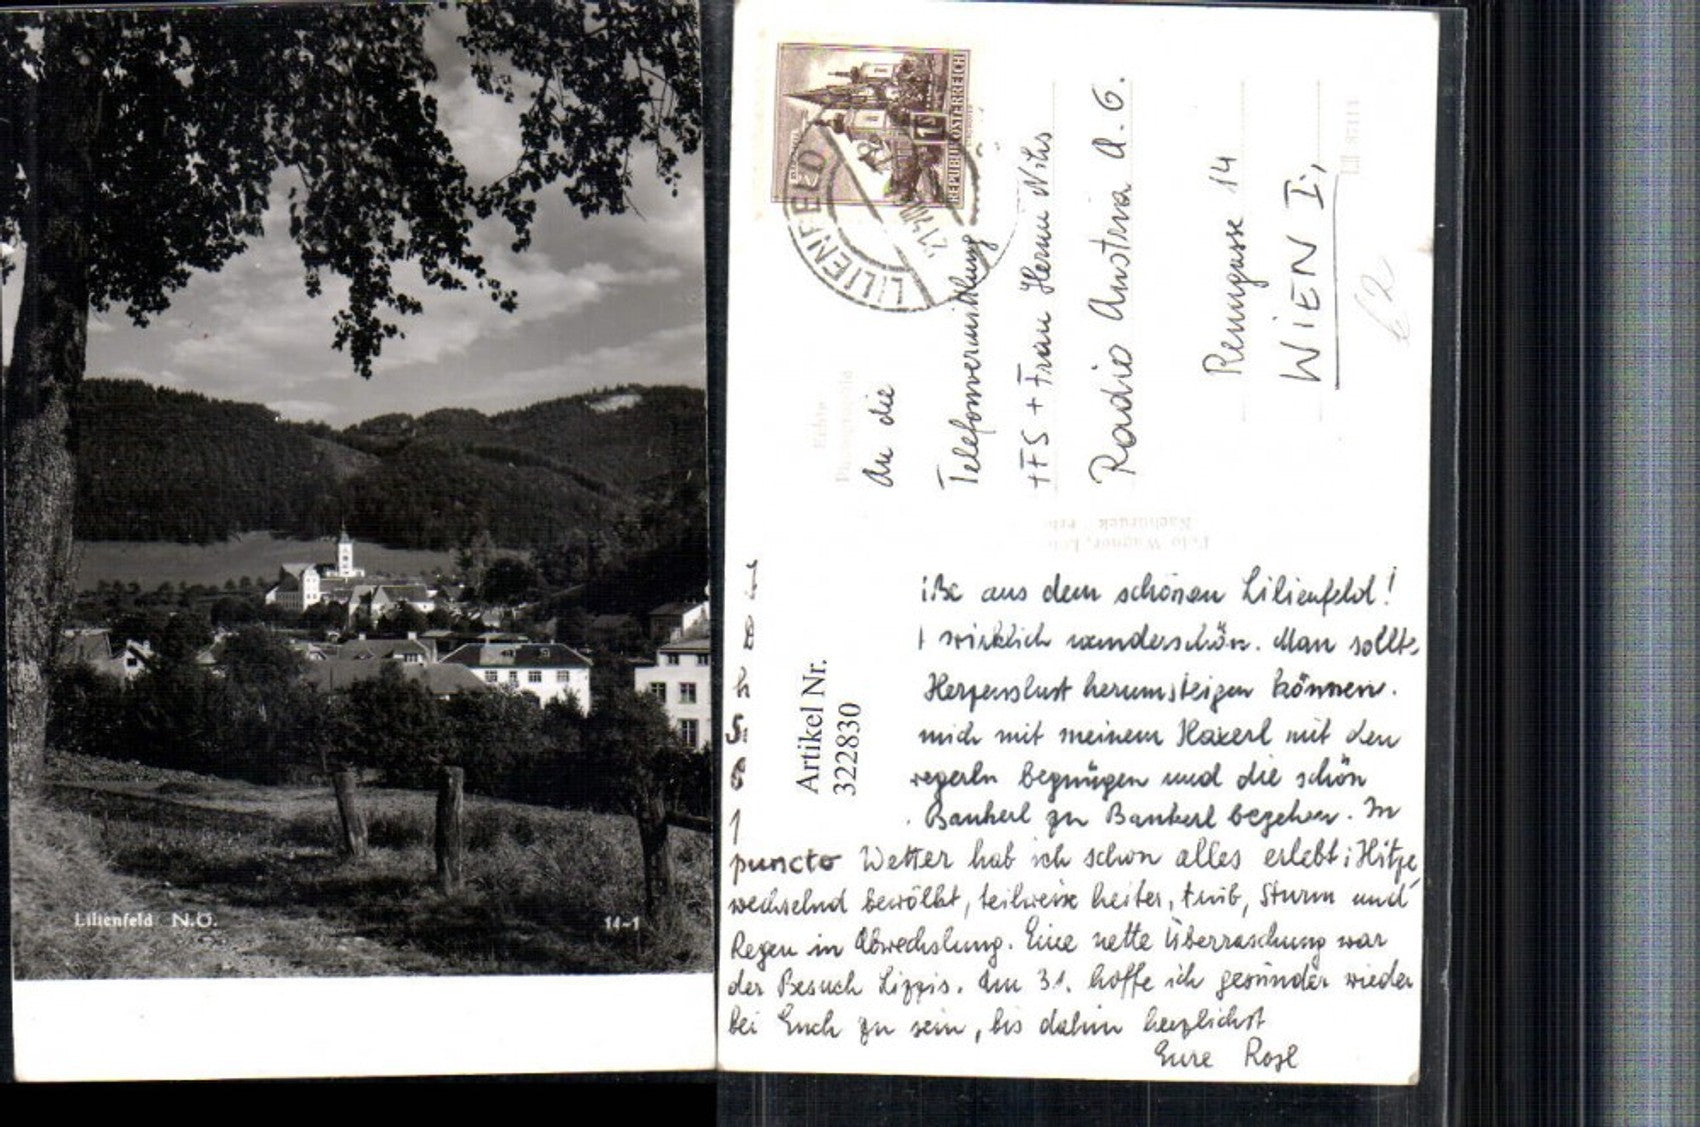 Lilienfeld N.Ö.
14-1
REPUBLIK ÖSTERREICH
LILIENFELD
An die
Telefonvermittlung
HFS + Frau Hermi
Radio Austria A.G.
Renngasse 14
WIEN I.,
62
Artikel Nr.
322830
aus dem schönen Lilienfeld!
wirklich wunderschön. Man sollte
Herzenslust herumsteigen können.
mich mit meinem Haxerl mit den
begnügen und die schön
Bankerl zu Bankerl begehen. In
puncto Wetter hab ich schon alles erlebt: Hitze,
wechselnd bewölkt, teilweise heiter, trüb, Sturm und
Regen in Abwechslung. Eine nette Überraschung war
der Besuch Lizzis. Am 31. hoffe ich gesünder wieder
bei Euch zu sein, bis dahin herzlichst
Eure Rosl